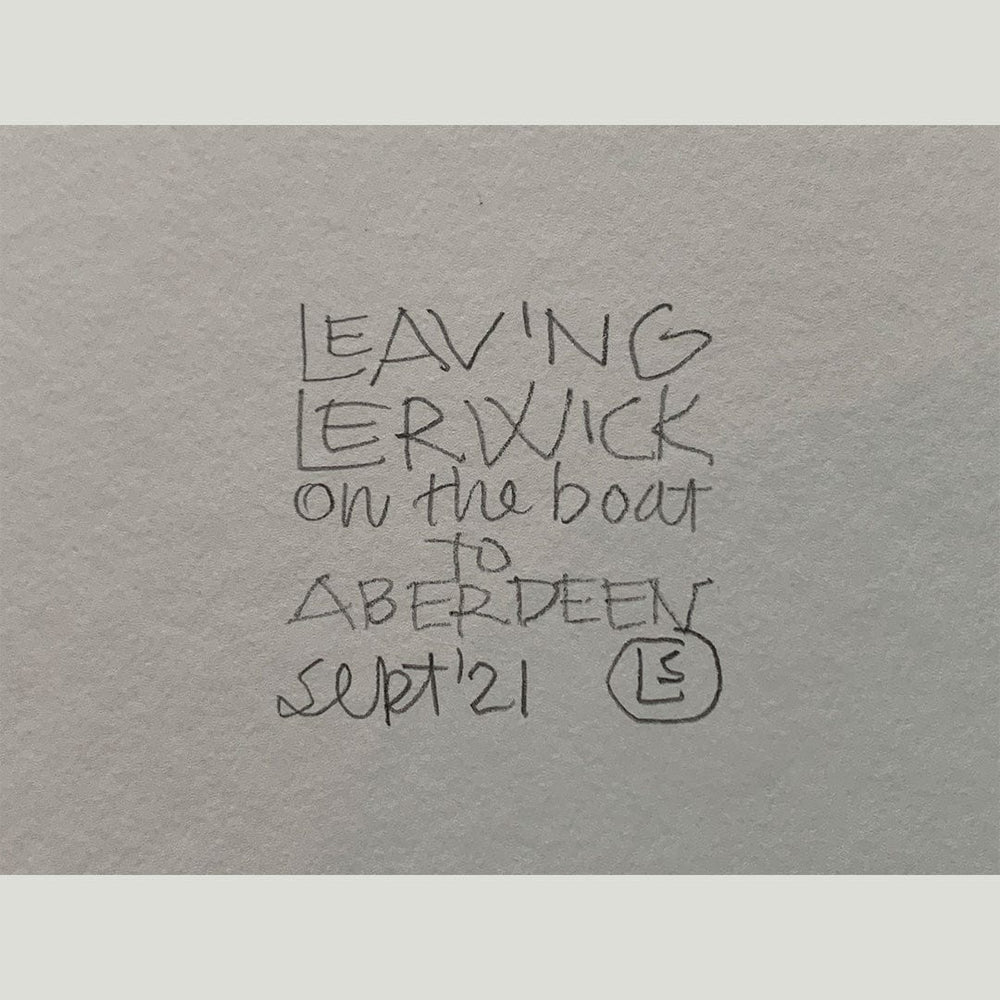 LEAVING
LERWICK
on the boat
TO
ABERDEEN
Sept '21 LS